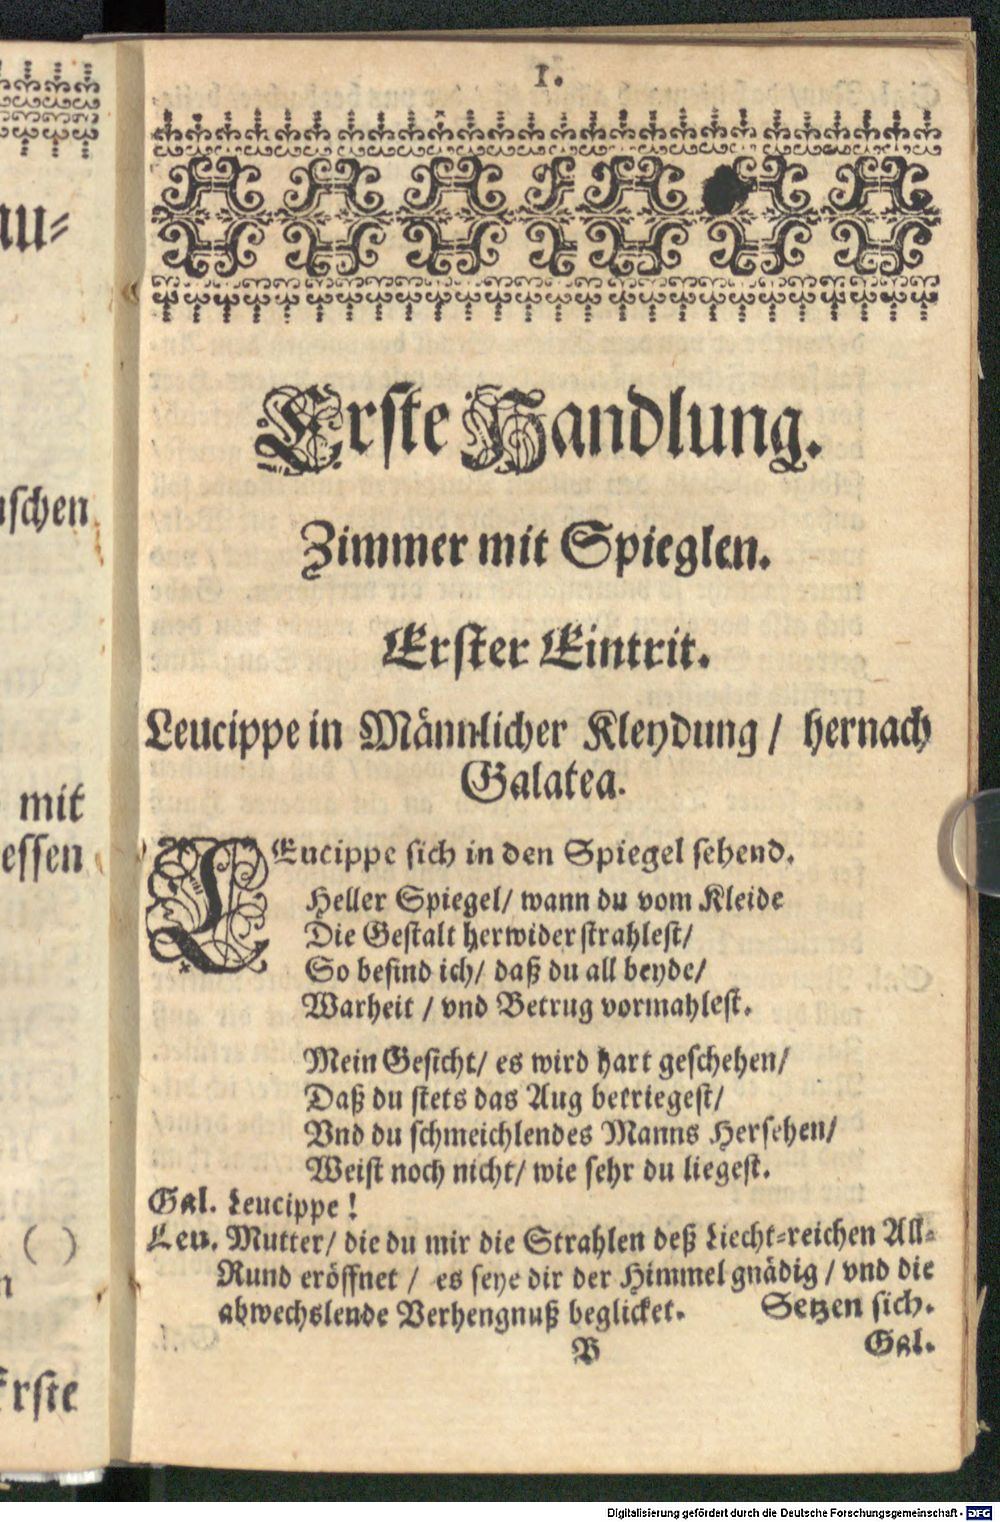 1.
Erste Handlung.
Zimmer mit Spieglen.
Erster Eintrit.
Leucippe in Männlicher Kleydung / hernach
Galatea.
LEucippe sich in den Spiegel sehend.
Heller Spiegel/ wann du vom Kleide
Die Gestalt herwider strahlest/
So befind ich/ daß du all beyde/
Warheit / vnd Betrug vormahlest.
Mein Gesicht/ es wird hart geschehen/
Daß du stets das Aug betriegest/
Vnd du schmeichlendes Manns Hersehen/
Weist noch nicht/ wie sehr du liegest.
Gal. Leucippe !
Leu. Mutter/ die du mir die Strahlen deß Liecht-reichen All-
Rund eröffnet / es seye dir der Himmel gnädig / vnd die
abwechslende Verhengnuß beglicket. Setzen sich.
B Gal.
au-
schen
mit
essen
( )
n
Erste
Digitalisierung gefördert durch die Deutsche Forschungsgemeinschaft - DFG